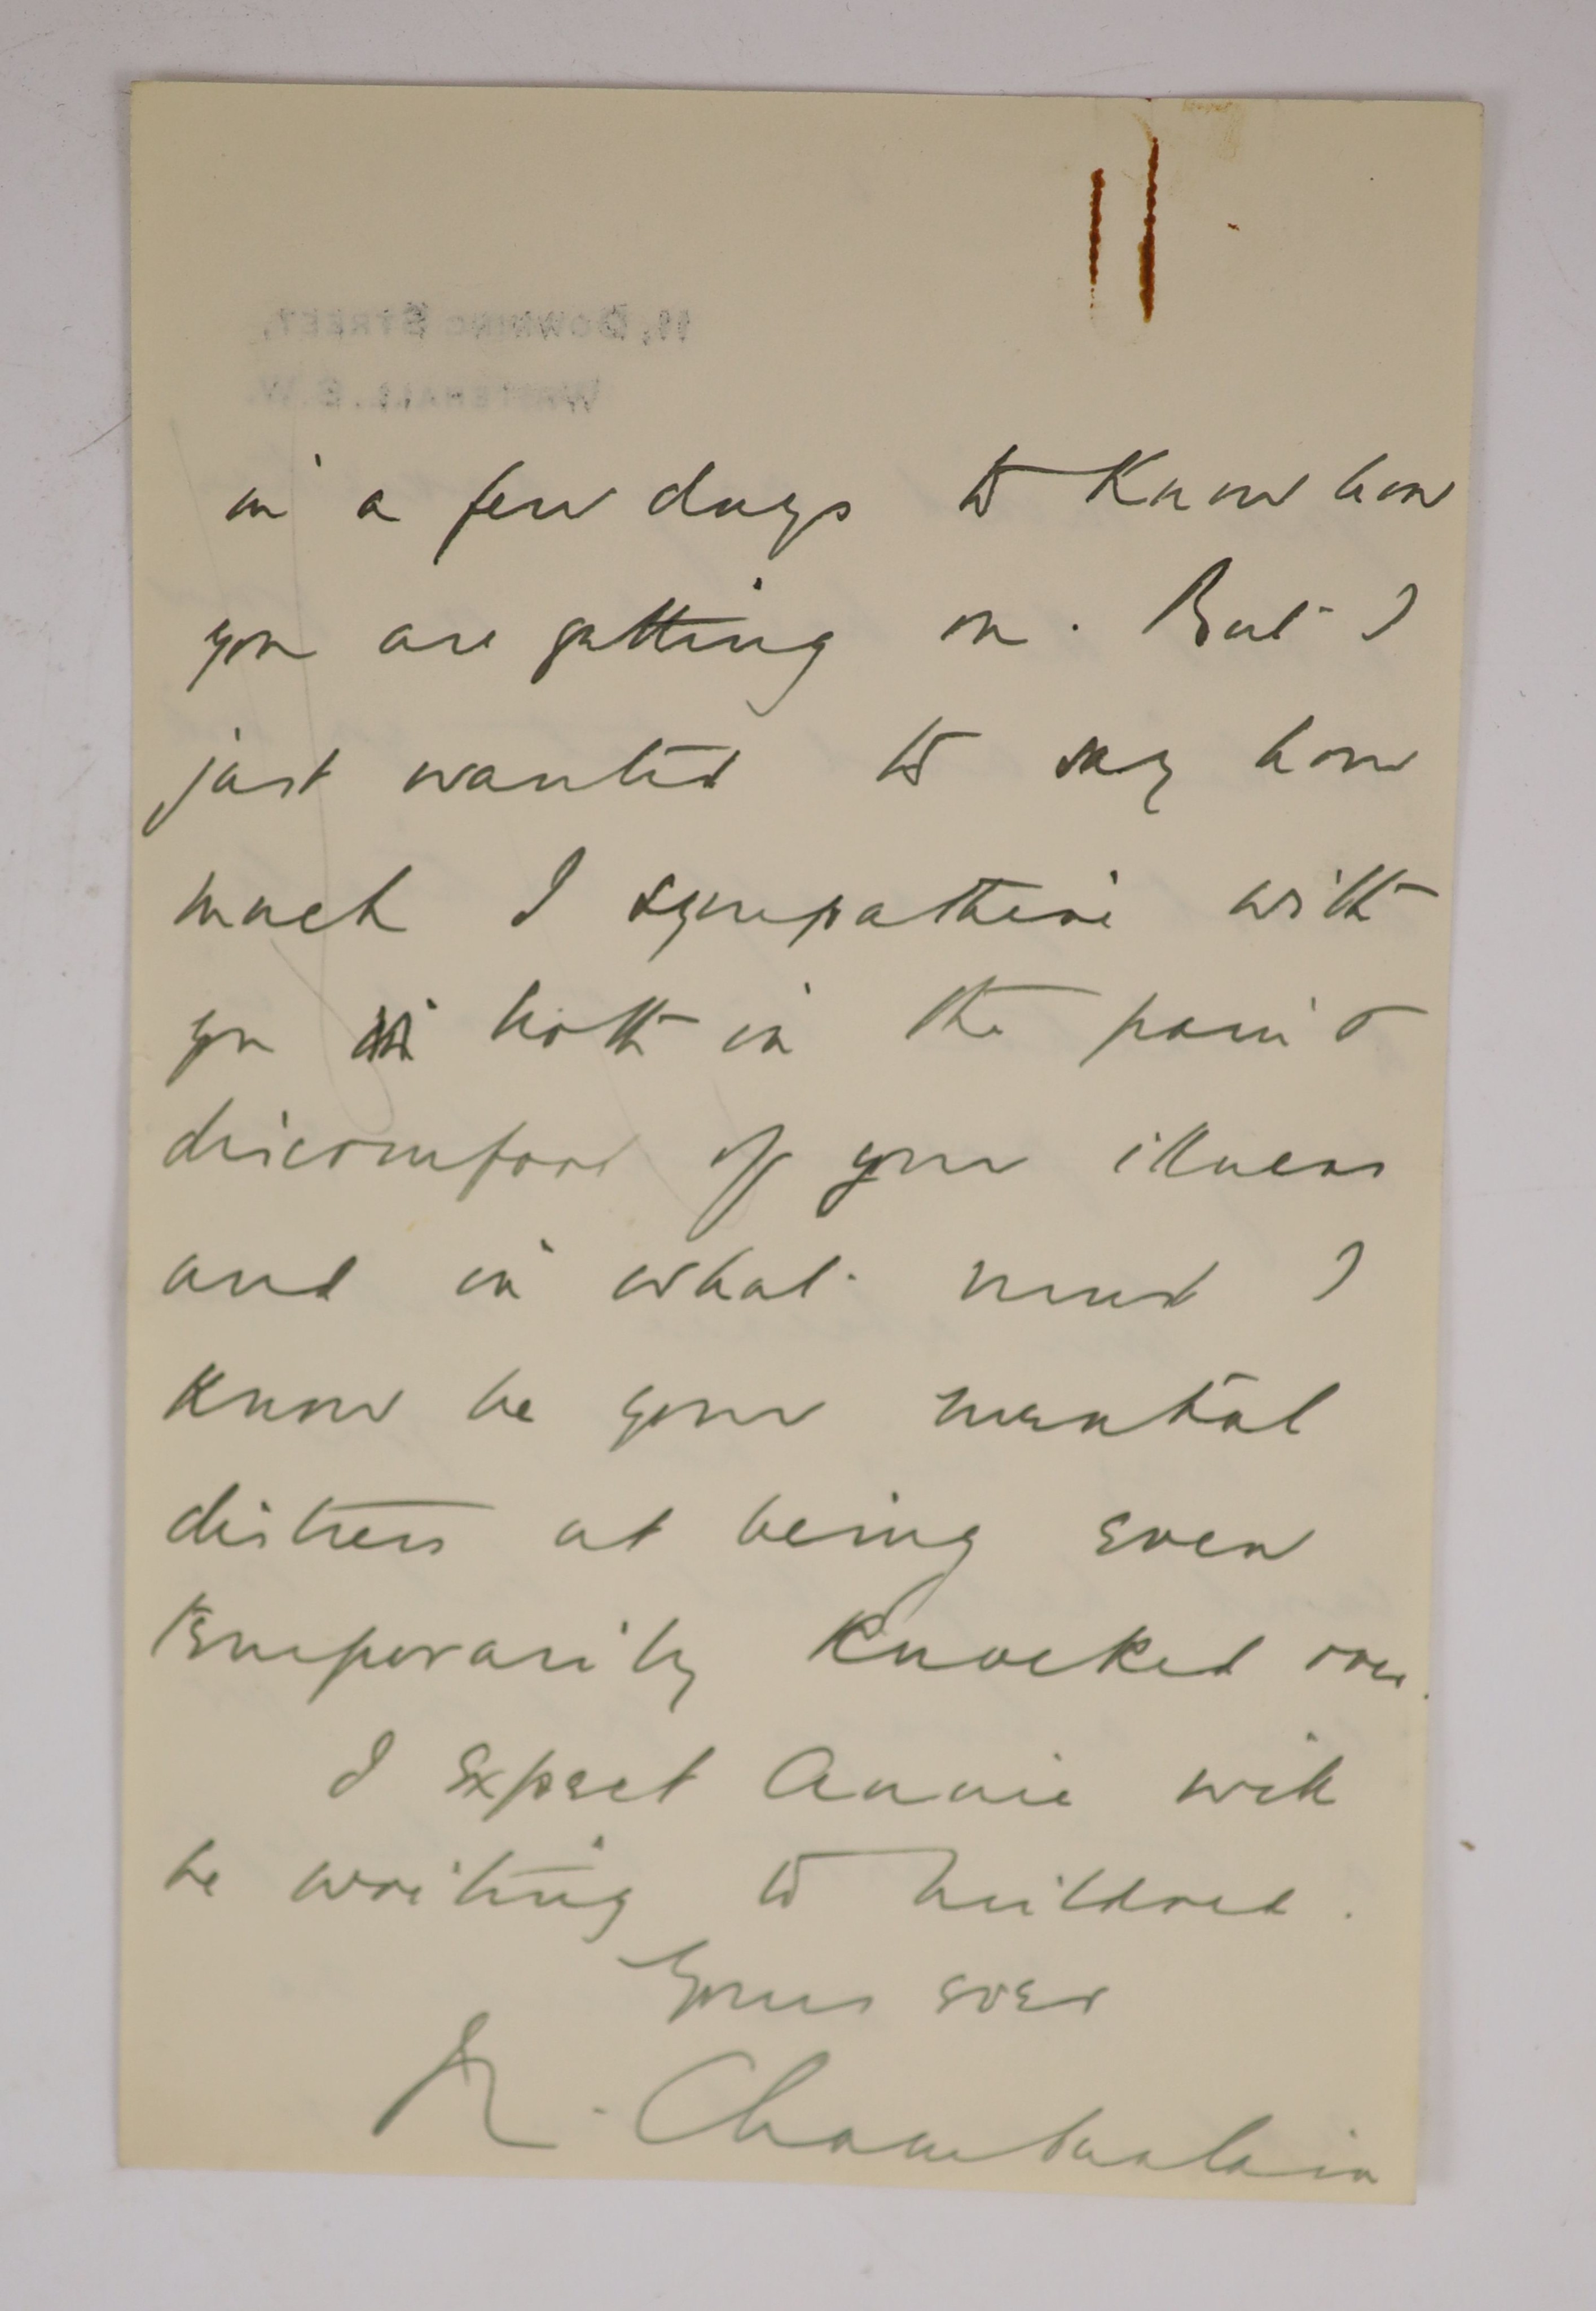 11, DOWNING STREET,
WHITEHALL. S.W.
in a few days to know how
you are getting on. But I
just wanted to say how
much I sympathise with
you both in the pain &
discomfort of your illness
and in what must I
know be your mental
distress at being even
temporarily knocked over.
I expect Annie will
be writing to Mildred.
Yours ever
N. Chamberlain